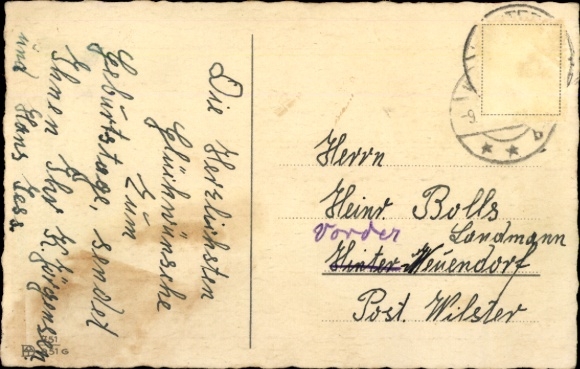 Die Herzlichsten
Glückwünsche
zum
Geburtstage, sendet
Ihnen Ihr K. Jörgensen
und Hans Jess.
Herrn
Heinr. Bolls
Landmann
Vorder
Hinter-Neuendorf
Post. Wilster